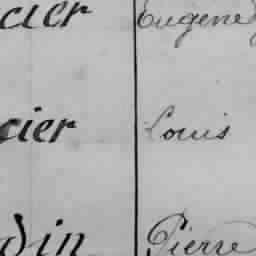 cier Eugene
cier Louis
din Pierre